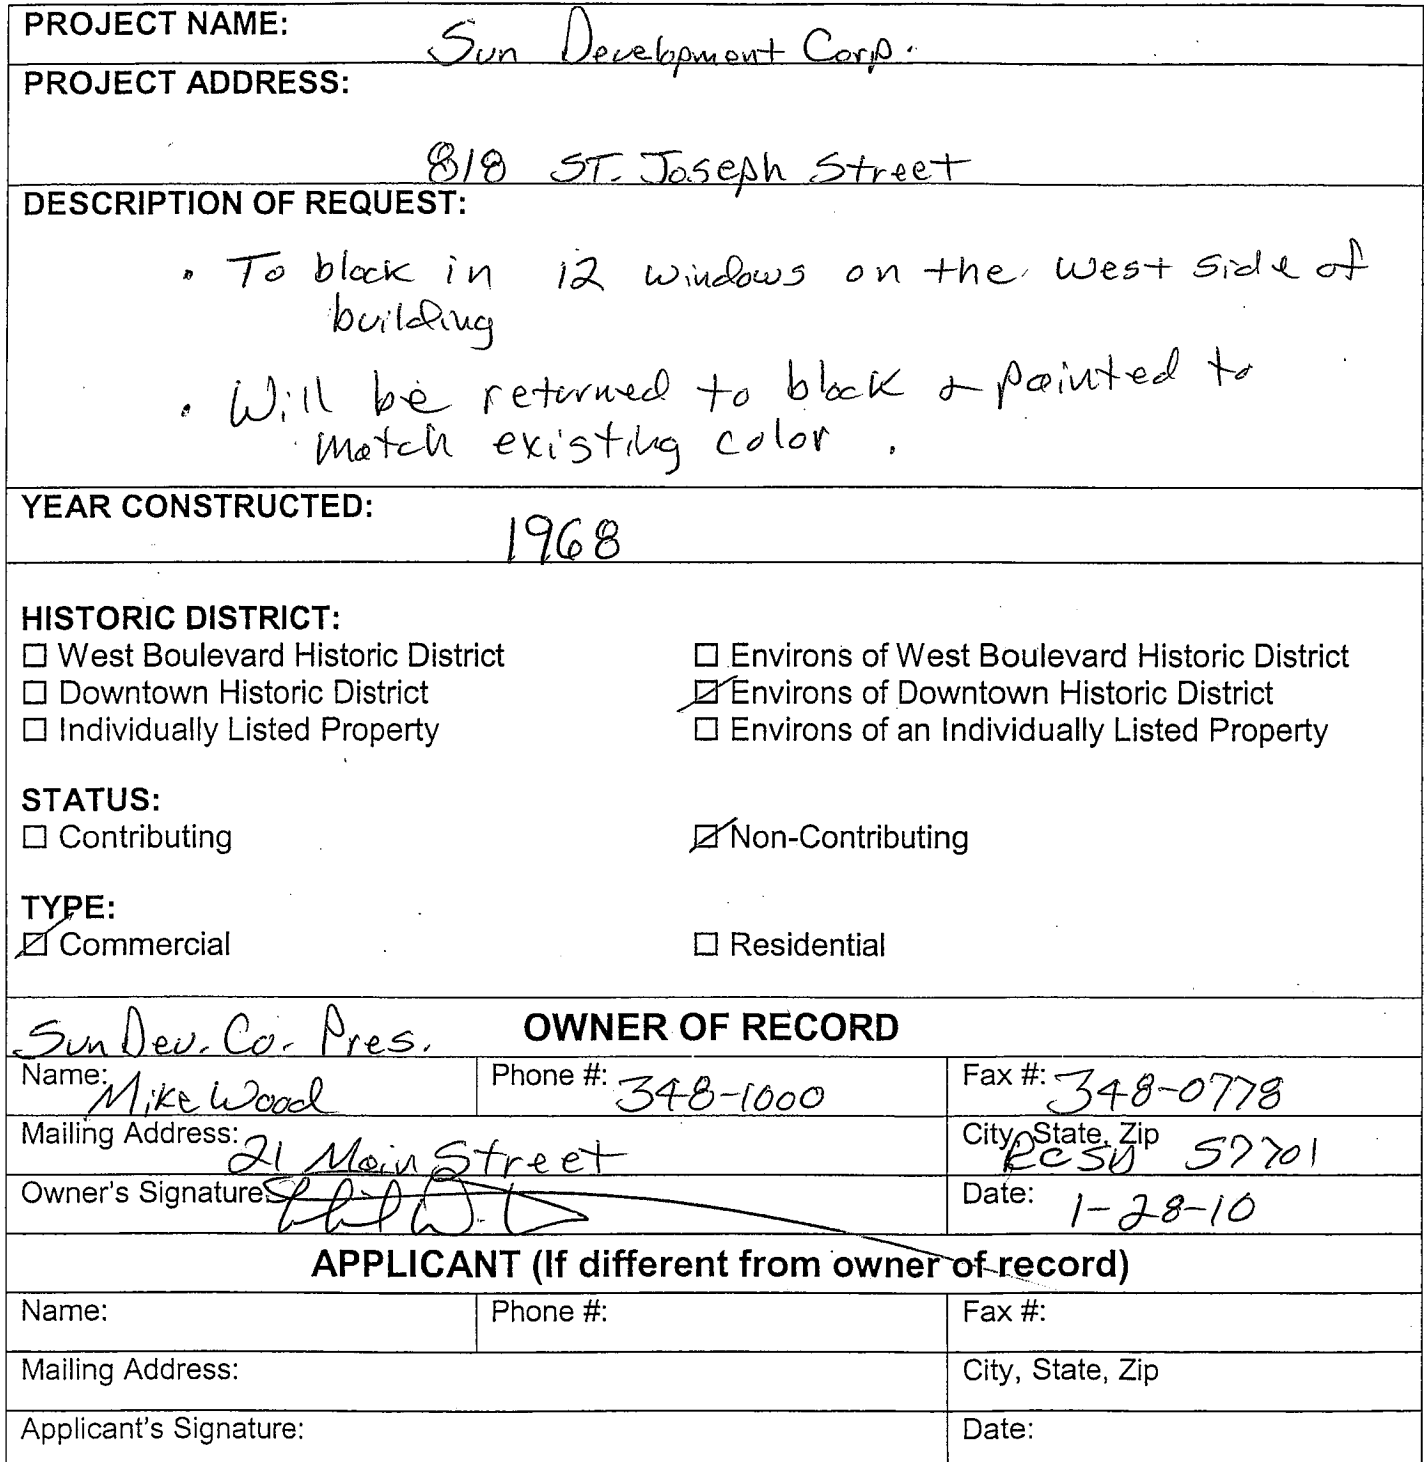 PROJECT NAME: Sun Development Corp.
PROJECT ADDRESS:
818 ST. Joseph Street
DESCRIPTION OF REQUEST:
• To block in 12 windows on the west side of
building
• Will be returned to block & painted to
match existing color.
YEAR CONSTRUCTED: 1968
HISTORIC DISTRICT:
☐ West Boulevard Historic District ☐ Environs of West Boulevard Historic District
☐ Downtown Historic District ☑ Environs of Downtown Historic District
☐ Individually Listed Property ☐ Environs of an Individually Listed Property
STATUS:
☐ Contributing ☑ Non-Contributing
TYPE:
☑ Commercial ☐ Residential
Sun Dev. Co. Pres. OWNER OF RECORD
Name: Mike Wood Phone #: 348-1000 Fax #: 348-0778
Mailing Address: 21 Main Street City, State, Zip RCSD 57701
Owner's Signature: Date: 1-28-10
APPLICANT (If different from owner of record)
Name: Phone #: Fax #:
Mailing Address: City, State, Zip
Applicant's Signature: Date: